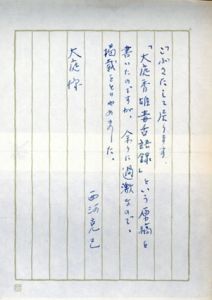 ごぶさたして居ります。
「大庭秀雄毒舌語録」という原稿を
書いたのですが、余りに過激なので、
掲載をとりやめました。
西河克己
大庭様